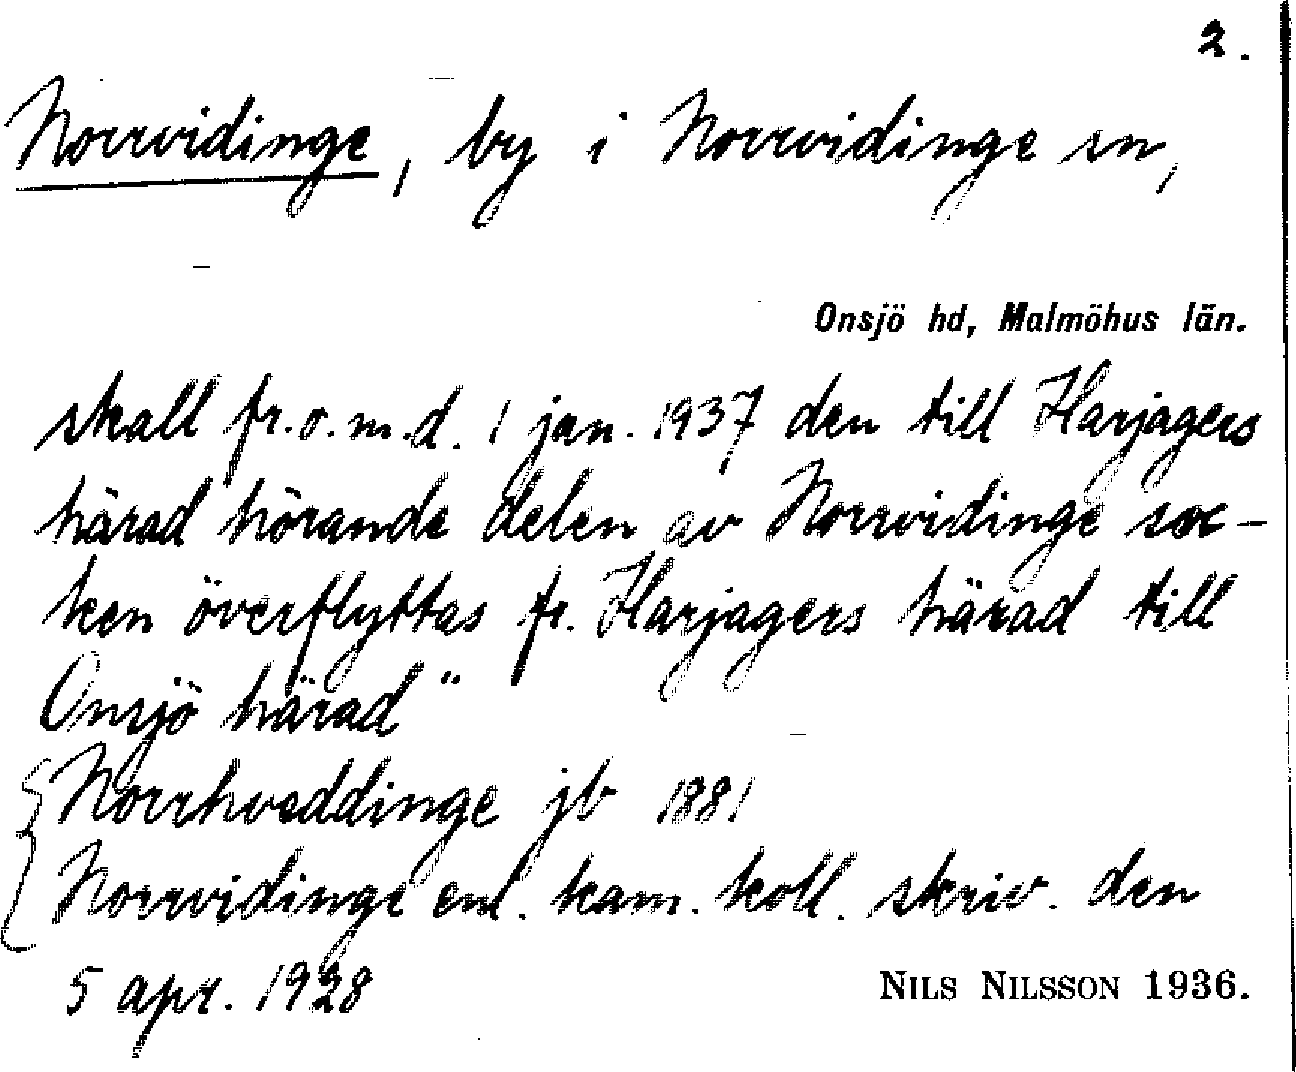 2.
Norrvidinge, by i Norrvidinge sn,
Onsjö hd, Malmöhus län.
skall fr.o.m.d. 1 jan. 1937 den till Harjagers
härad hörande delen av Norrvidinge soc-
ken överflyttas fr. Harjagers härad till
Onsjö härad"
Norrhveddinge jb 1881
Norrvidinge enl. kam. koll. skriv. den
5 apr. 1928
NILS NILSSON 1936.